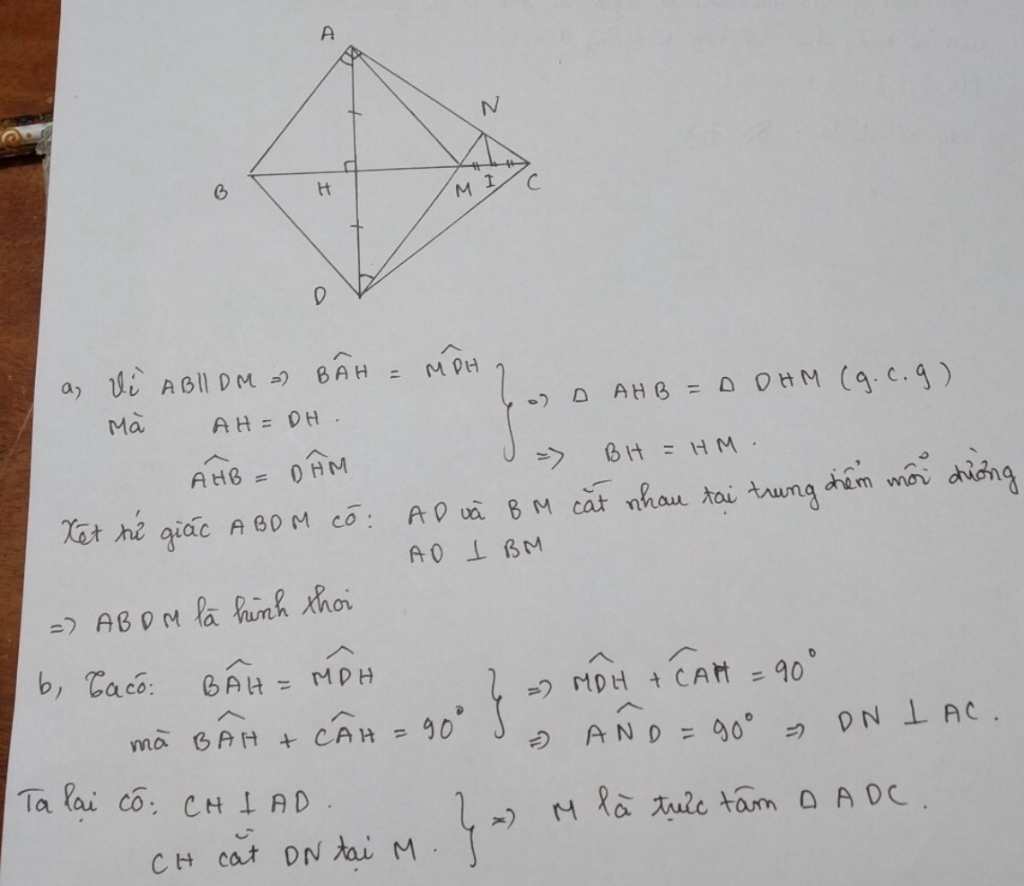 A
N
B
H
M
I
C
D
a, Vì AB∥DM => BÂH = MD̂H
Mà AH = DH.
AĤB = DĤM
=> Δ AHB = Δ DHM (g.c.g)
=> BH = HM.
Xét tứ giác ABDM có: AD và BM cắt nhau tại trung điểm mỗi đường
AD ⊥ BM
=> ABDM là hình thoi
b, Ta có: BÂH = MD̂H
mà BÂH + CÂH = 90°
=> MD̂H + CÂH = 90°
=> AN̂D = 90° => DN ⊥ AC.
Ta lại có: CH ⊥ AD.
CH cắt DN tại M.
=> M là trực tâm Δ ADC.